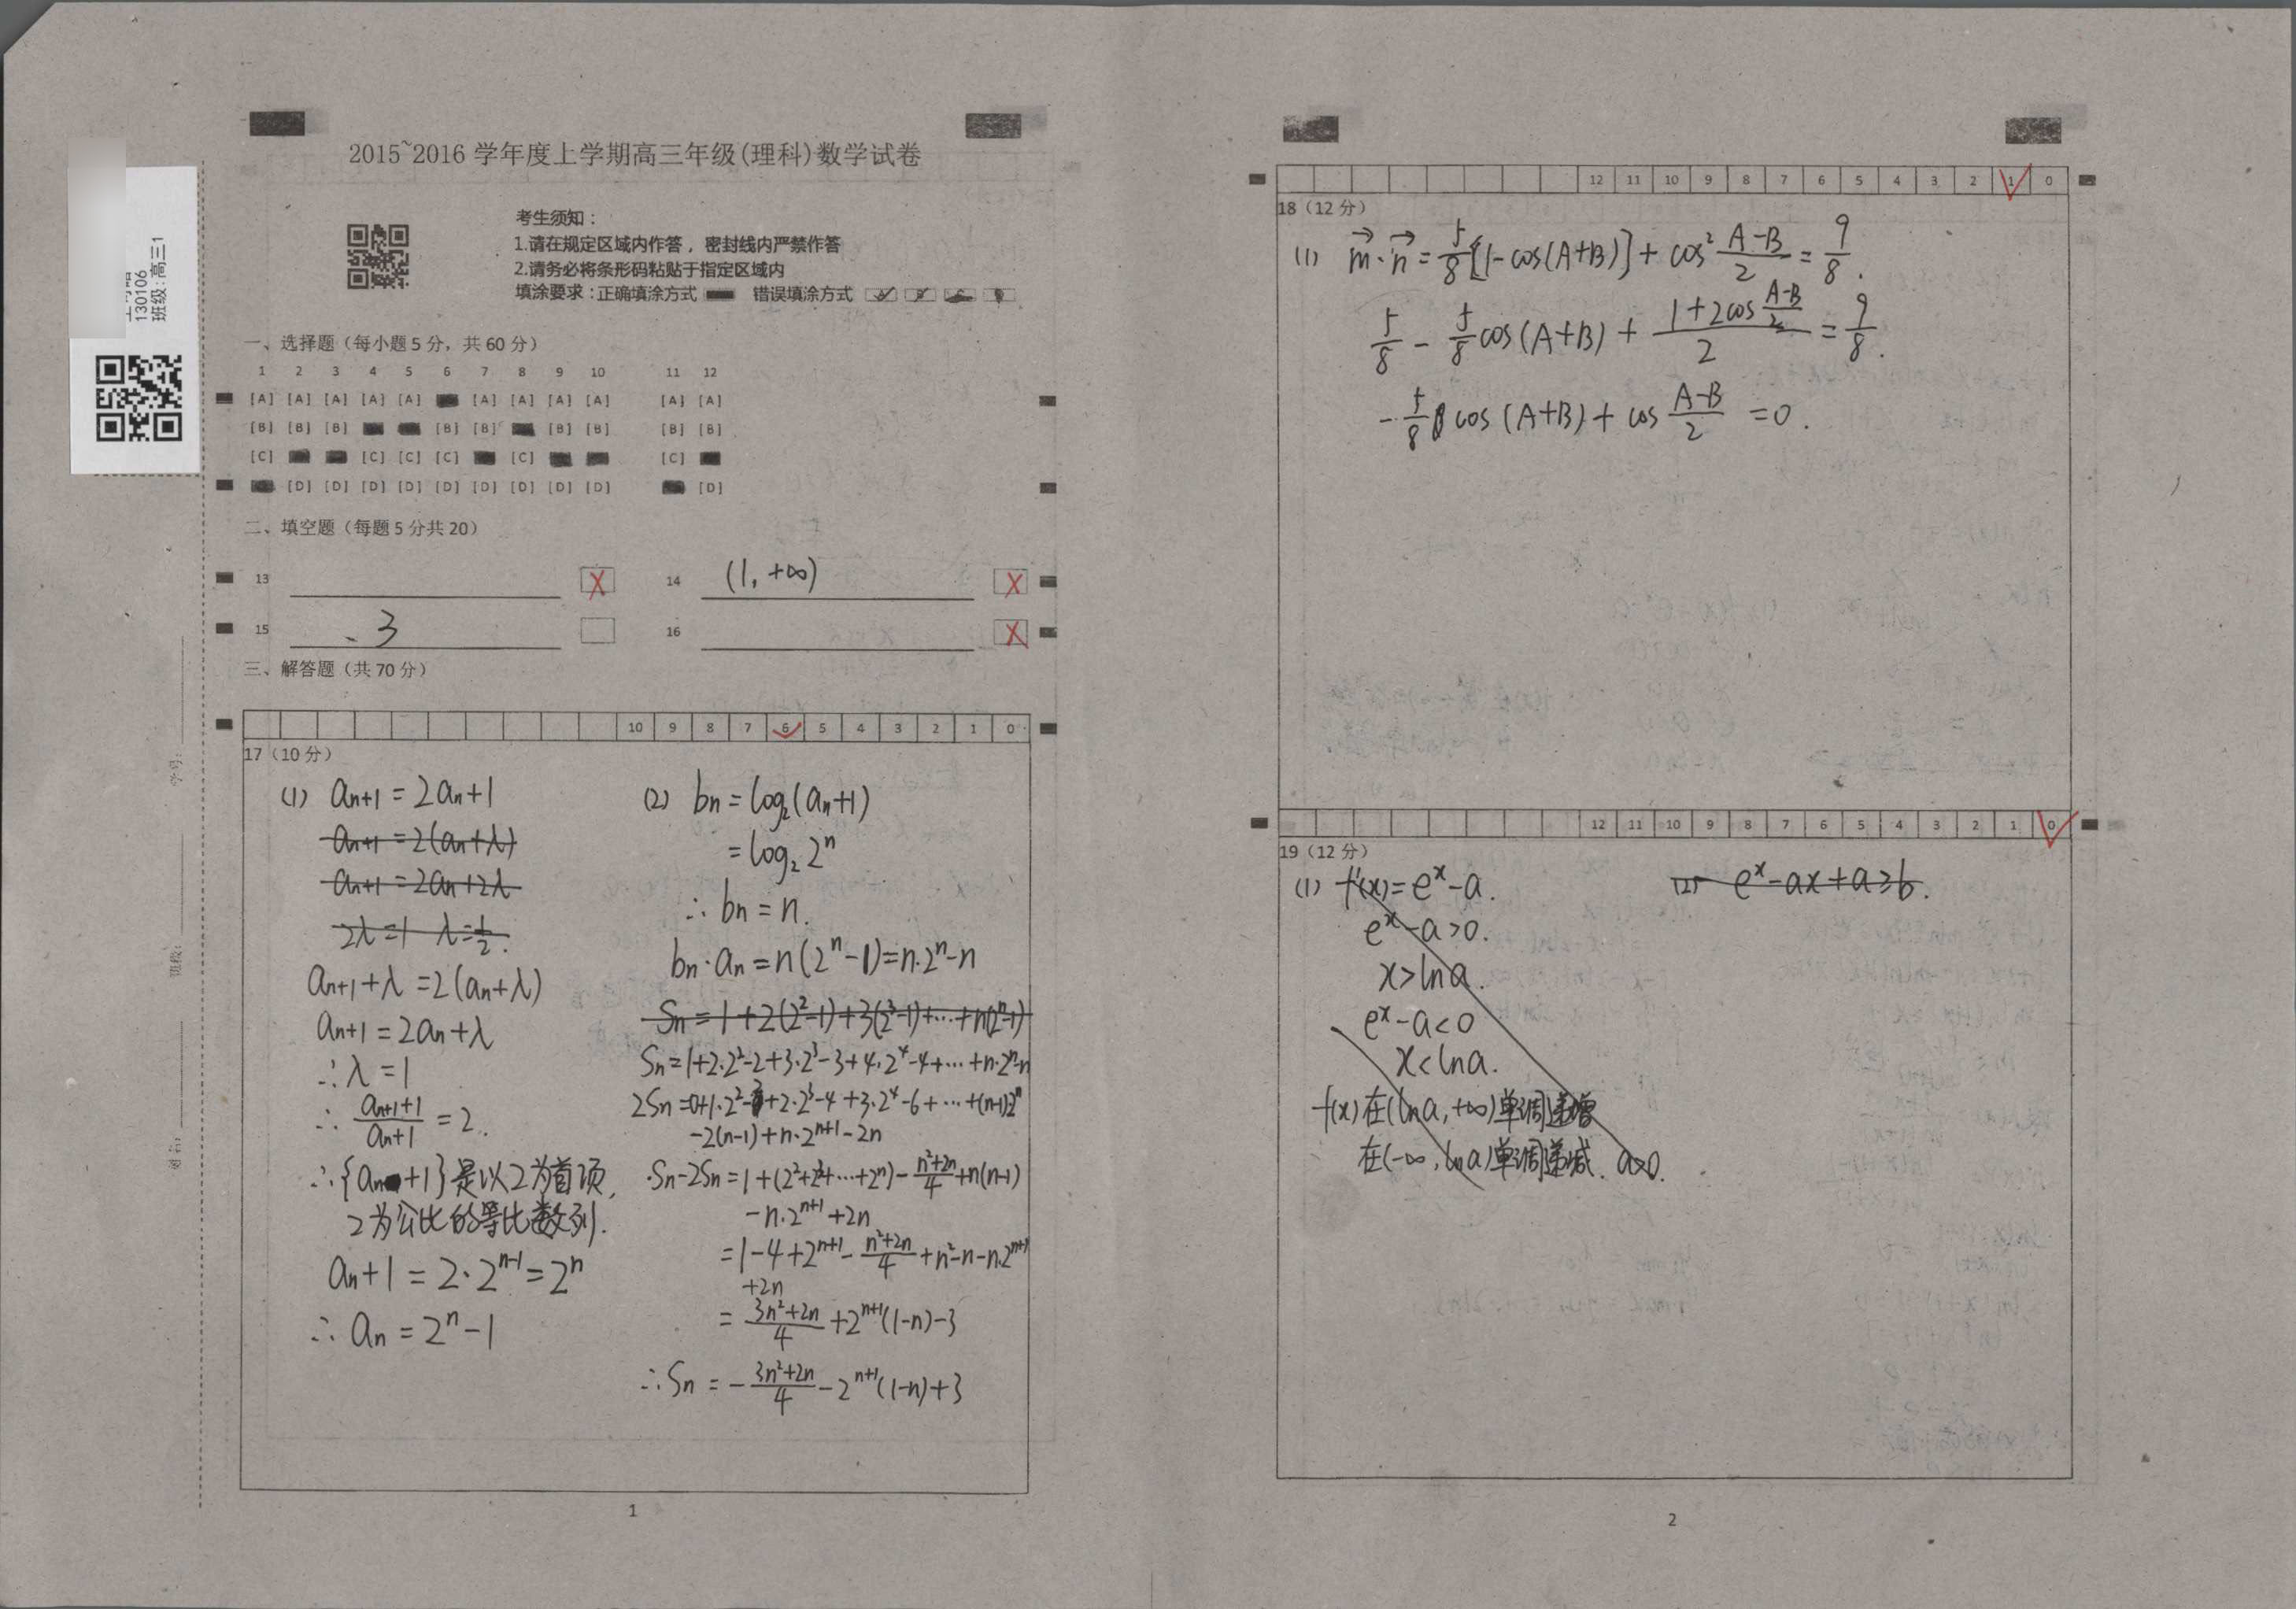 2015~2016 学年度上学期高三年级(理科)数学试卷
130106
班级:高三1
考生须知：
1.请在规定区域内作答，密封线内严禁作答
2.请务必将条形码粘贴于指定区域内
填涂要求：正确填涂方式 错误填涂方式
一、选择题（每小题 5 分，共 60 分）
1 2 3 4 5 6 7 8 9 10 11 12
[A] [A] [A] [A] [A] [A] [A] [A] [A] [A] [A]
[B] [B] [B] [B] [B] [B] [B] [B] [B]
[C] [C] [C] [C] [C] [C]
[D] [D] [D] [D] [D] [D] [D] [D] [D] [D]
二、填空题（每题 5 分共 20）
13
14 (1, +∞)
15 3
16
三、解答题（共 70 分）
10 9 8 7 6 5 4 3 2 1 0
17（10 分）
(1) aₙ₊₁ = 2aₙ+1
aₙ₊₁ = 2(aₙ+λ)
aₙ₊₁ = 2aₙ+2λ
2λ=1 λ=1/2.
aₙ₊₁+λ = 2(aₙ+λ)
aₙ₊₁ = 2aₙ+λ
∴ λ = 1
∴ (aₙ₊₁+1)/(aₙ+1) = 2.
∴ {aₙ+1} 是以2为首项,
2为公比的等比数列.
aₙ+1 = 2·2ⁿ⁻¹ = 2ⁿ
∴ aₙ = 2ⁿ-1
(2) bₙ = log₂(aₙ+1)
= log₂ 2ⁿ
∴ bₙ = n.
bₙ·aₙ = n(2ⁿ-1) = n·2ⁿ-n
Sₙ = 1+2(2²-1)+3(2³-1)+…+n(2ⁿ-1)
Sₙ = 1+2·2²-2+3·2³-3+4·2⁴-4+…+n·2ⁿ-n
2Sₙ = 0+1·2²- +2·2³-4+3·2⁴-6+…+(n-1)2ⁿ
-2(n-1)+n·2ⁿ⁺¹-2n
Sₙ-2Sₙ = 1+(2²+2³+…+2ⁿ)-(n²+2n)/4+n(n-1)
-n·2ⁿ⁺¹+2n
= 1-4+2ⁿ⁺¹-(n²+2n)/4+n²-n-n·2ⁿ⁺¹
+2n
= (3n²+2n)/4+2ⁿ⁺¹(1-n)-3
∴ Sₙ = -(3n²+2n)/4-2ⁿ⁺¹(1-n)+3
学号:
班级:
姓名:
1
12 11 10 9 8 7 6 5 4 3 2 1 0
18（12 分）
(1) m⃗·n⃗ = 5/8[1-cos(A+B)]+cos² (A-B)/2 = 9/8.
5/8 - 5/8 cos(A+B) + (1+2cos (A-B)/2)/2 = 9/8.
-5/8 cos(A+B)+cos (A-B)/2 = 0.
12 11 10 9 8 7 6 5 4 3 2 1 0
19（12 分）
(1) f'(x) = eˣ-a.
eˣ-a>0.
x>lna.
eˣ-a<0
x<lna.
f(x)在(lna,+∞)单调递增
在(-∞,lna)单调递减. a>0.
(2) eˣ-ax+a≥b.
2